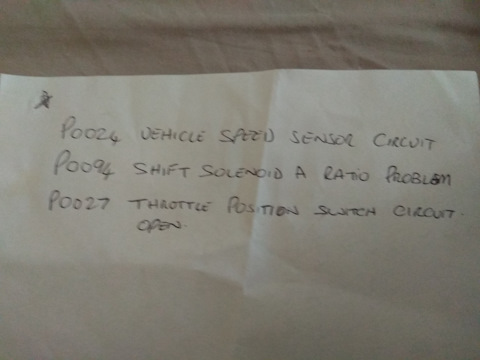 P0024 VEHICLE SPEED SENSOR CIRCUIT
P0094 SHIFT SOLENOID A RATIO PROBLEM
P0027 THROTTLE POSITION SWITCH CIRCUIT.
OPEN.